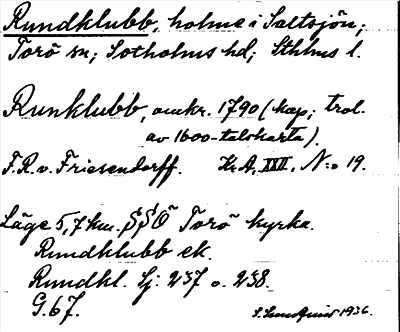 Rundklubb, holme i Saltsjön;
Torö sn; Sotholms hd; Sthlms l.
Runklubb, omkr. 1790 (kop; trol.
av 1600-talskarta).
F.R. v. Friesendorff. Kr.A. XXII, N:o 19.
Läge 5,7 km. SSÖ Torö kyrka.
Rundklubb ek.
Rundkl. Sj: 237 o. 238
G. 67.
1936.